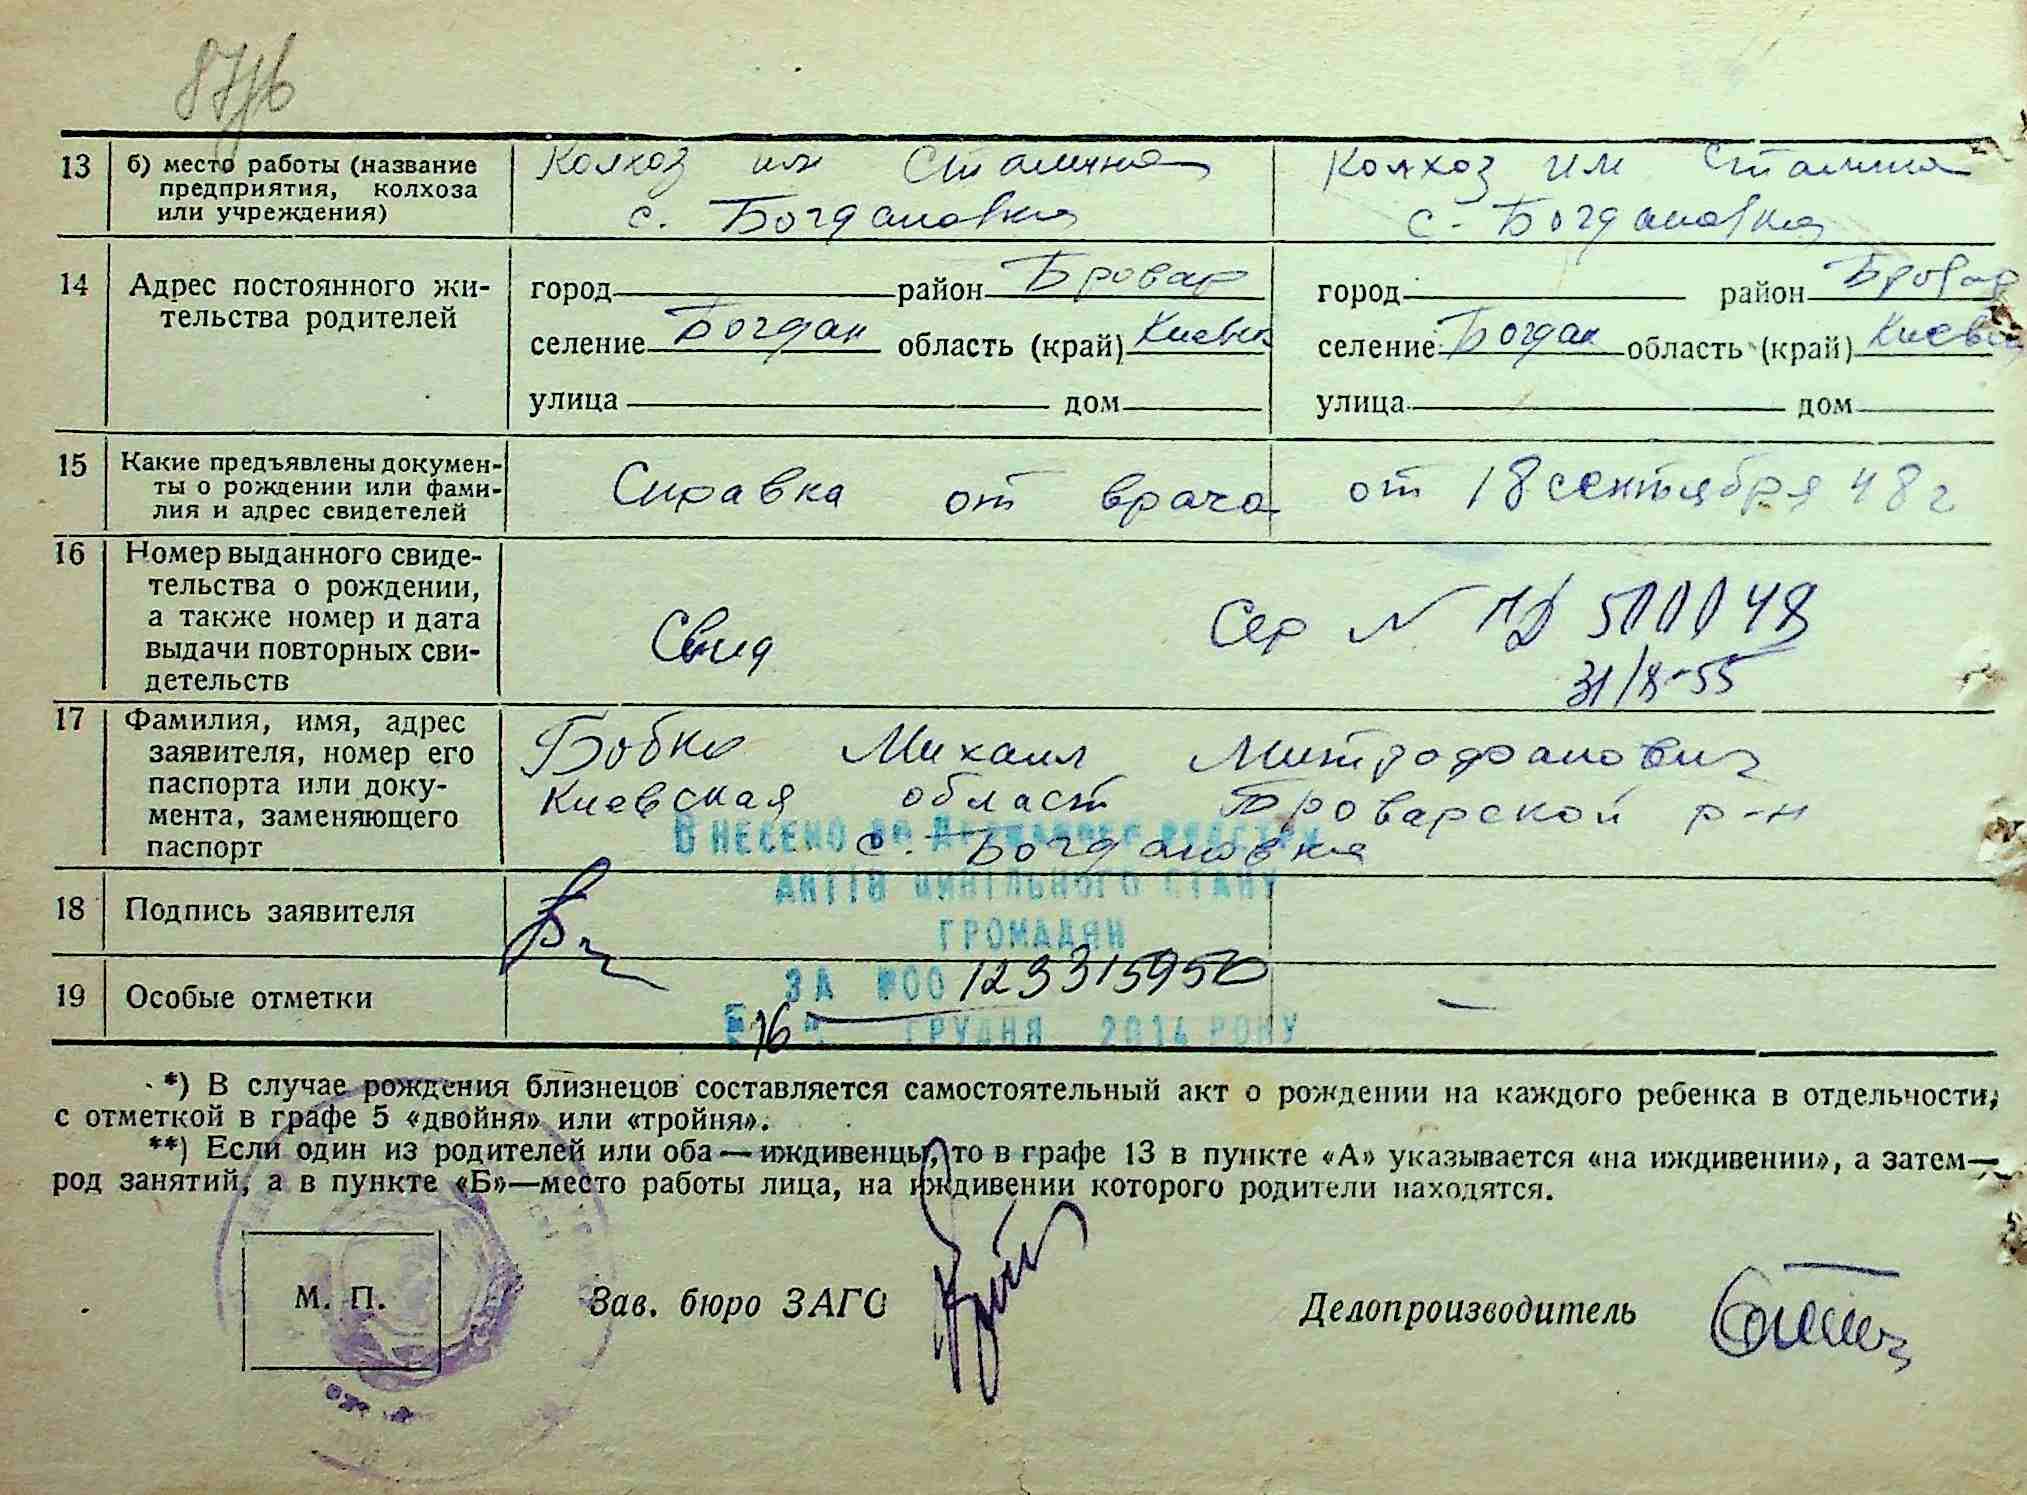 13 б) место работы (название
предприятия, колхоза
или учреждения)
Колхоз им Сталина
с. Богдановка
Колхоз им Сталина
с. Богдановка
14 Адрес постоянного жи-
тельства родителей
город район Бровар
селение Богдан область (край) Киевск
улица дом
город район Бровар
селение Богдан область (край) Киевск
улица дом
15 Какие предъявлены докумен-
ты о рождении или фами-
лия и адрес свидетелей
Справка от врача от 18 сентября 48 г
16 Номер выданного свиде-
тельства о рождении,
а также номер и дата
выдачи повторных сви-
детельств
Свид Сер N
31/X-55
17 Фамилия, имя, адрес
заявителя, номер его
паспорта или доку-
мента, заменяющего
паспорт
Бобко Михаил Митрофанович
Киевская област Броварской р-н
с. Богдановка
ВНЕСЕНО ДО ДЕРЖАВНОГО РЕЄСТРУ
АКТІВ ЦИВІЛЬНОГО СТАНУ
ГРОМАДЯН
ЗА №00123315950
16 ГРУДНЯ 2014 РОКУ
18 Подпись заявителя
19 Особые отметки —
*) В случае рождения близнецов составляется самостоятельный акт о рождении на каждого ребенка в отдельности,
с отметкой в графе 5 «двойня» или «тройня».
**) Если один из родителей или оба — иждивенцы, то в графе 13 в пункте «А» указывается «на иждивении», а затем—
род занятий, а в пункте «Б»—место работы лица, на иждивении которого родители находятся.
М. П.
Зав. бюро ЗАГС
Делопроизводитель